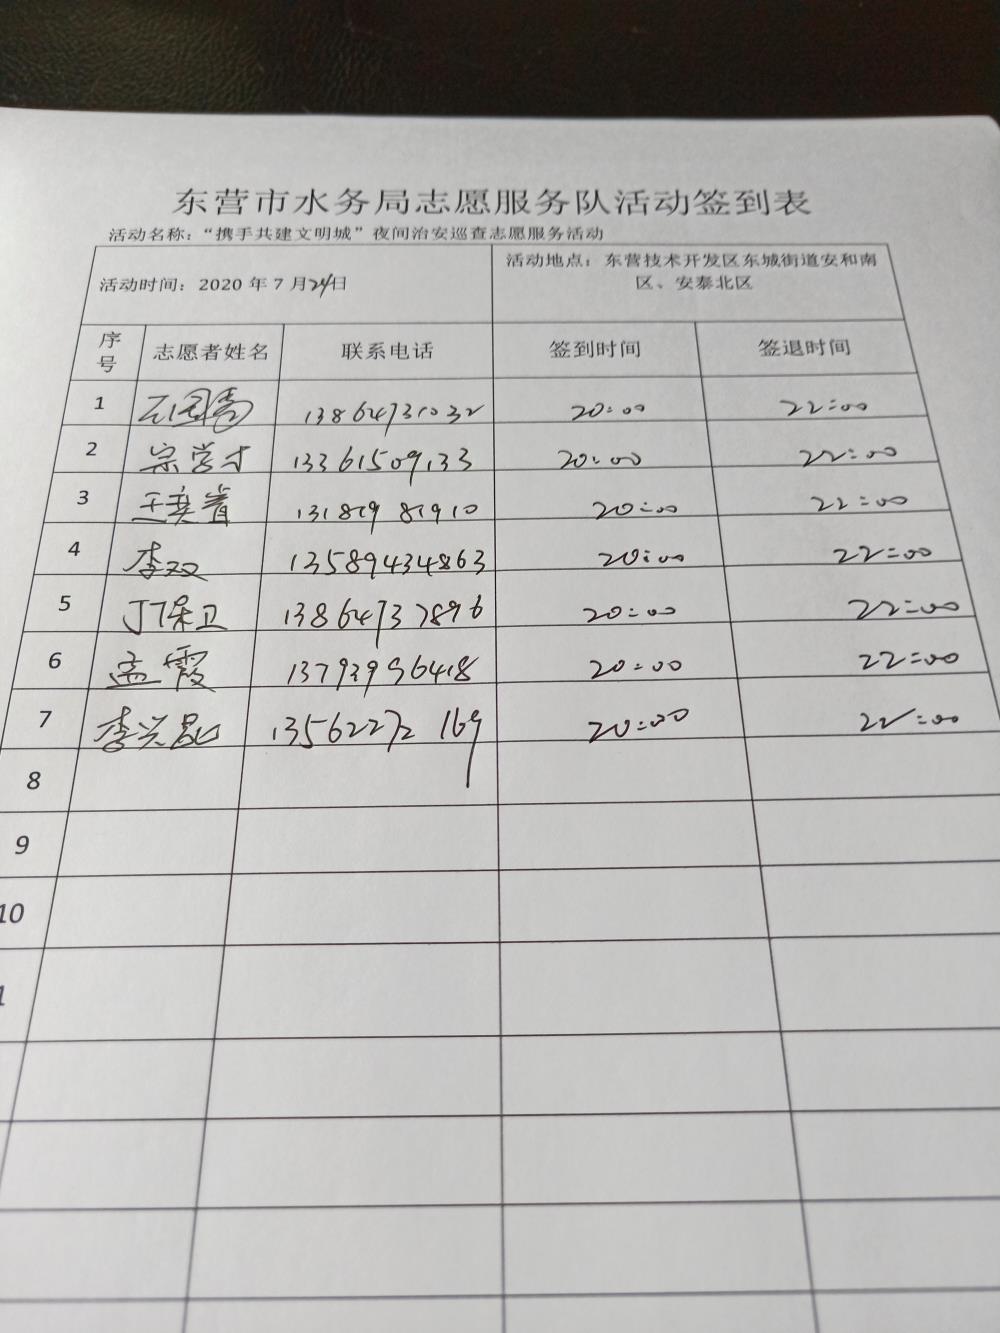 东营市水务局志愿服务队活动签到表
活动名称：“携手共建文明城”夜间治安巡查志愿服务活动
活动时间：2020 年 7 月24日
活动地点：东营技术开发区东城街道安和南
区、安泰北区
序号 志愿者姓名 联系电话 签到时间 签退时间
1 13864731032 20:00 22:00
2 宗学才 13361509133 20:00 22:00
3 20:00 22:00
4 李双 135894434863 20:00 22:00
5 丁保卫 13864737896 20:00 22:00
6 孟霞 13793996418 20:00 22:00
7 李兴 13562272169 20:00 22:00
8
9
10
1